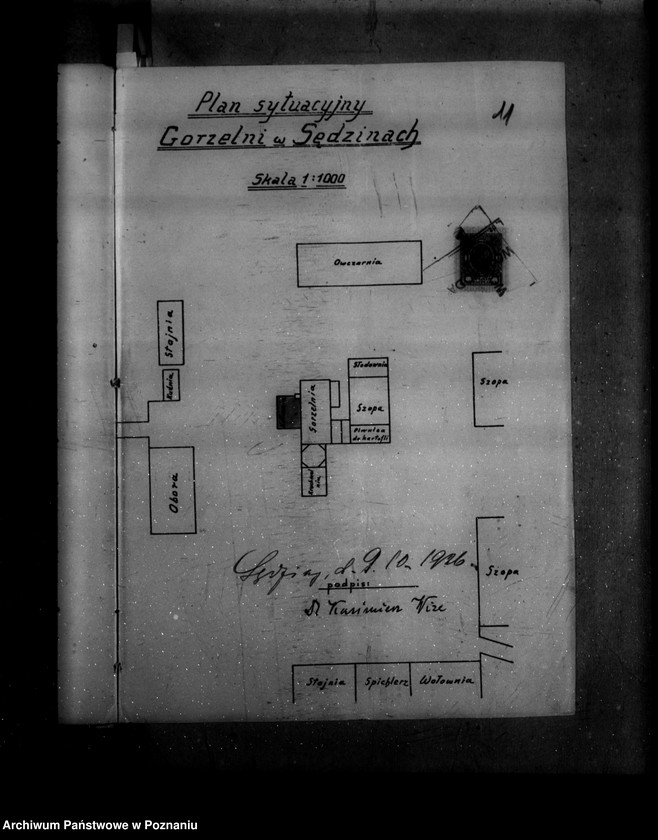 Plan sytuacyjny
11
Gorzelni w Sędzinach
Skala 1:1000
Owczarnia
Stajnia
Kuźnia
Obora
Gorzelnia
Słodownia
Szopa
Piwnica
do kartofli
Szopa
Szopa
d. 9. 10. 1926.
podpis:
Dr Kazimierz
Stajnia
Spichlerz
Wołownia
Archiwum Państwowe w Poznaniu